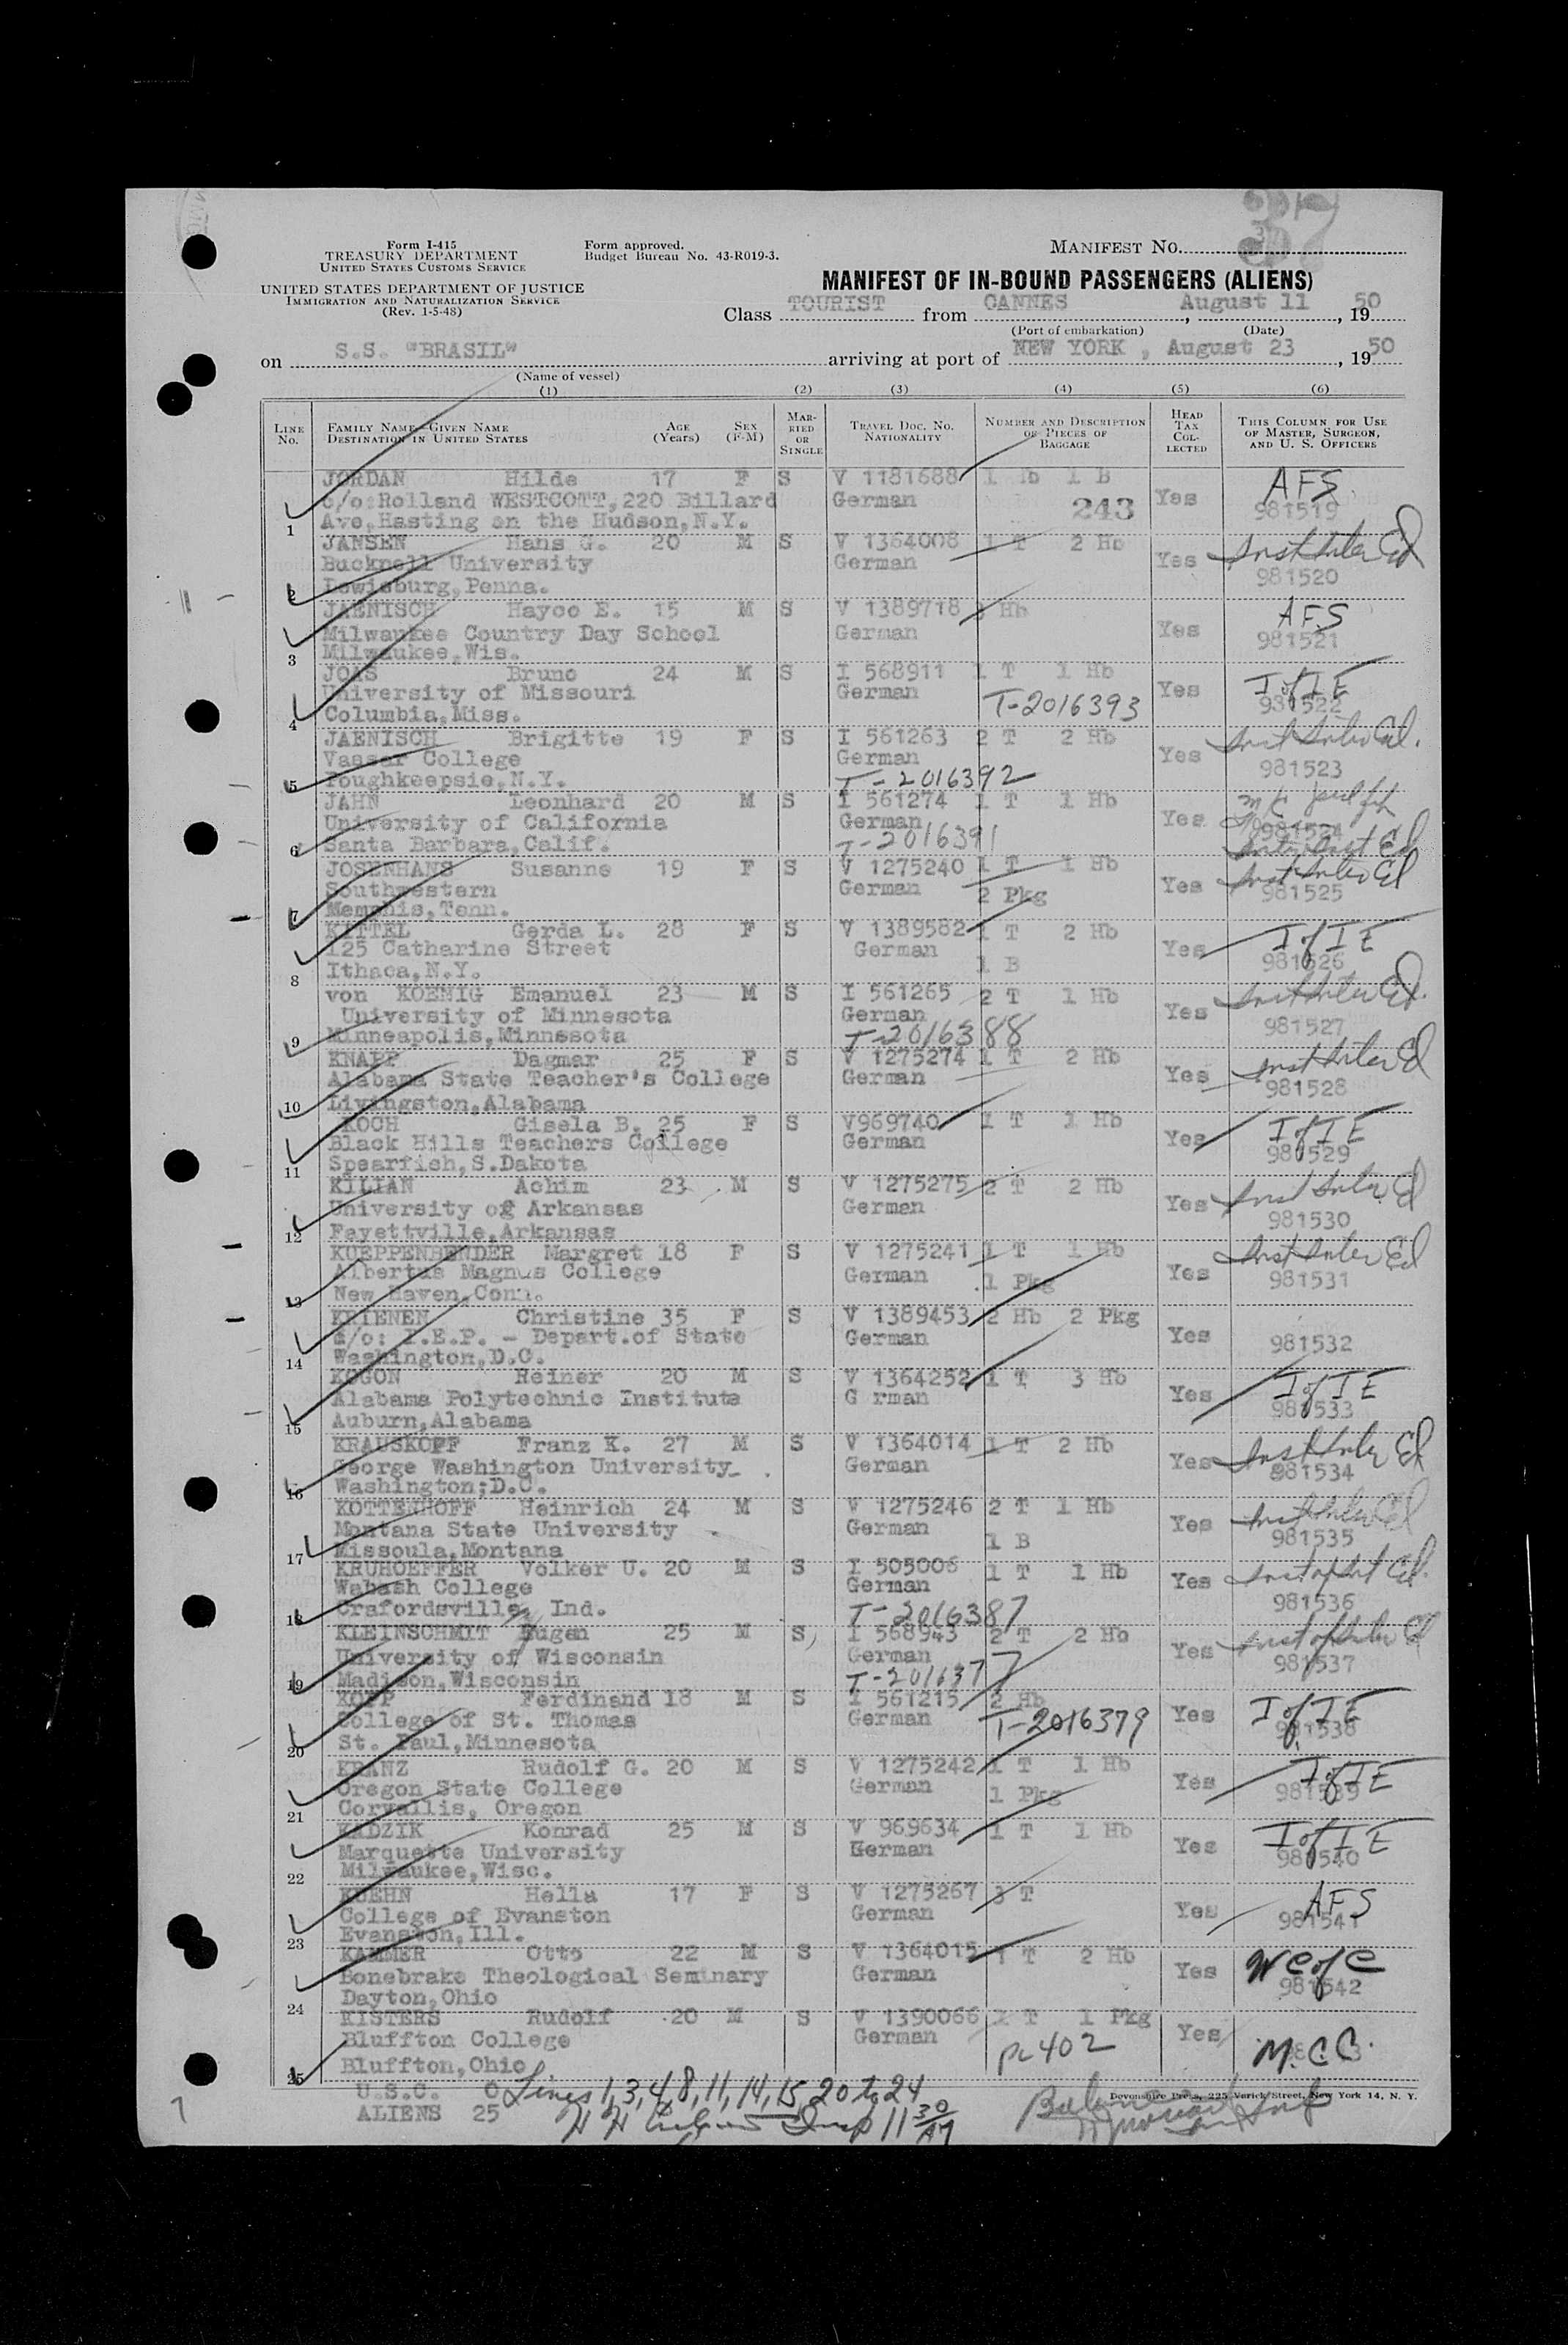 Form I-415
TREASURY DEPARTMENT
UNITED STATES CUSTOMS SERVICE
UNITED STATES DEPARTMENT OF JUSTICE
IMMIGRATION AND NATURALIZATION SERVICE
(Rev. 1-5-48)
Form approved.
Budget Bureau No. 43-R019-3.
MANIFEST NO. 37
MANIFEST OF IN-BOUND PASSENGERS (ALIENS)
Class TOURIST from CANNES, August 11, 1950
(Port of embarkation) (Date)
on S.S. "BRASIL" arriving at port of NEW YORK, August 23, 1950
(Name of vessel)
(1) (2) (3) (4) (5) (6)
LINE No. FAMILY NAME—GIVEN NAME DESTINATION IN UNITED STATES AGE (Years) SEX (F-M) MARRIED OR SINGLE TRAVEL DOC. NO. NATIONALITY NUMBER AND DESCRIPTION OF PIECES OF BAGGAGE HEAD TAX COLLECTED THIS COLUMN FOR USE OF MASTER, SURGEON, AND U. S. OFFICERS
JORDAN Hilde 17 F S V 1181688 1 Hb 1 B AFS
c/o:Rolland WESTCOTT,220 Billard German 243 Yes 981519
1 Ave,Hasting on the Hudson,N.Y.
JANSEN Hans G. 20 M S V 1364008 1 T 2 Hb Inst Inter Ed
Bucknell University German Yes 981520
2 Lewisburg,Penna.
JAENISCH Hayco E. 15 M S V 1389718 Hb AFS
Milwaukee Country Day School German Yes 981521
3 Milwaukee,Wis.
JOAS Bruno 24 M S I 568911 1 T 1 Hb I of I E
University of Missouri German Yes 981522
4 Columbia,Miss. T-2016393
JAENISCH Brigitte 19 F S I 561263 2 T 2 Hb Inst Inter Ed.
Vassar College German Yes 981523
5 Poughkeepsie,N.Y. T-2016392
JAHN Leonhard 20 M S I 561274 1 T 1 Hb
University of California German Yes 981524
6 Santa Barbara,Calif. T-2016391 Inter Inst Ed
JOSENHANS Susanne 19 F S V 1275240 1 T 1 Hb Inst Inter Ed
Southwestern German 2 Pkg Yes 981525
7 Memphis,Tenn.
KITTEL Gerda L. 28 F S V 1389582 1 T 2 Hb I of I E
125 Catharine Street German Yes 981526
8 Ithaca,N.Y. 1 B
von KOENIG Emanuel 23 M S I 561265 2 T 1 Hb Inst Inter Ed.
University of Minnesota German Yes 981527
9 Minneapolis,Minnesota T-2016388
KNAPP Dagmar 25 F S V 1275274 1 T 2 Hb Inst Inter Ed
Alabama State Teacher's College German Yes 981528
10 Livingston,Alabama
KOCH Gisela B. 25 F S V969740 1 T 1 Hb I of I E
Black Hills Teachers College German Yes 981529
11 Spearfish,S.Dakota
KILIAN Achim 23 M S V 1275275 2 T 2 Hb Inst Inter Ed
University of Arkansas German Yes 981530
12 Fayettville,Arkansas
KUEPPENBENDER Margret 18 F S V 1275241 1 T 1 Hb Inst Inter Ed
Albertus Magnus College German 1 Pkg Yes 981531
13 New Haven,Conn.
KRIENEN Christine 35 F S V 1389453 2 Hb 2 Pkg
c/o: I.E.P. - Depart.of State German Yes 981532
14 Washington,D.C.
KOGON Reiner 20 M S V 1364252 1 T 3 Hb I of I E
Alabama Polytechnic Institute G rman Yes 981533
15 Auburn,Alabama
KRAUSKOPF Franz K. 27 M S V 1364014 1 T 2 Hb Inst Inter Ed
George Washington University German Yes 981534
16 Washington;D.C.
KOTTENHOFF Heinrich 24 M S V 1275246 2 T 1 Hb Inst Inter Ed
Montana State University German 1 B Yes 981535
17 Missoula,Montana
KRUHOEFFER Volker U. 20 M S I 505006 1 T 1 Hb Inst of Int Ed.
Wabash College German Yes 981536
18 Crafordsville, Ind. T-2016387
KLEINSCHMIT Eugen 25 M S I 568943 2 T 2 Hb Inst of Inter Ed
University of Wisconsin German Yes 981537
19 Madison,Wisconsin T-2016377
KOPP Ferdinand 18 M S I 561215 2 Hb I of I E
College of St. Thomas German T-2016379 Yes 981538
20 St. Paul,Minnesota
KRANZ Rudolf G. 20 M S V 1275242 1 T 1 Hb I of I E
Oregon State College German 1 Pkg Yes 981539
21 Corvallis, Oregon
KADZIK Konrad 25 M S V 969634 1 T 1 Hb I of I E
Marquette University German Yes 981540
22 Milwaukee,Wisc.
KUEHN Hella 17 F S V 1275267 3 T AFS
College of Evanston German Yes 981541
23 Evanston,Ill.
KAMMER Otto 22 M S V 1364015 1 T 2 Hb W C of C
Bonebrake Theological Seminary German Yes 981542
24 Dayton,Ohio
KISTERS Rudolf 20 M S V 1390066 1 T 1 Pkg
Bluffton College German PL 402 Yes M.C.C.
25 Bluffton,Ohio
U.S.C. 0 Lines 1,3,4,8,11,14,15,20 to 24
ALIENS 25 Insp 11 30 AM
Devonshire Press, 225 Varick Street, New York 14, N. Y.